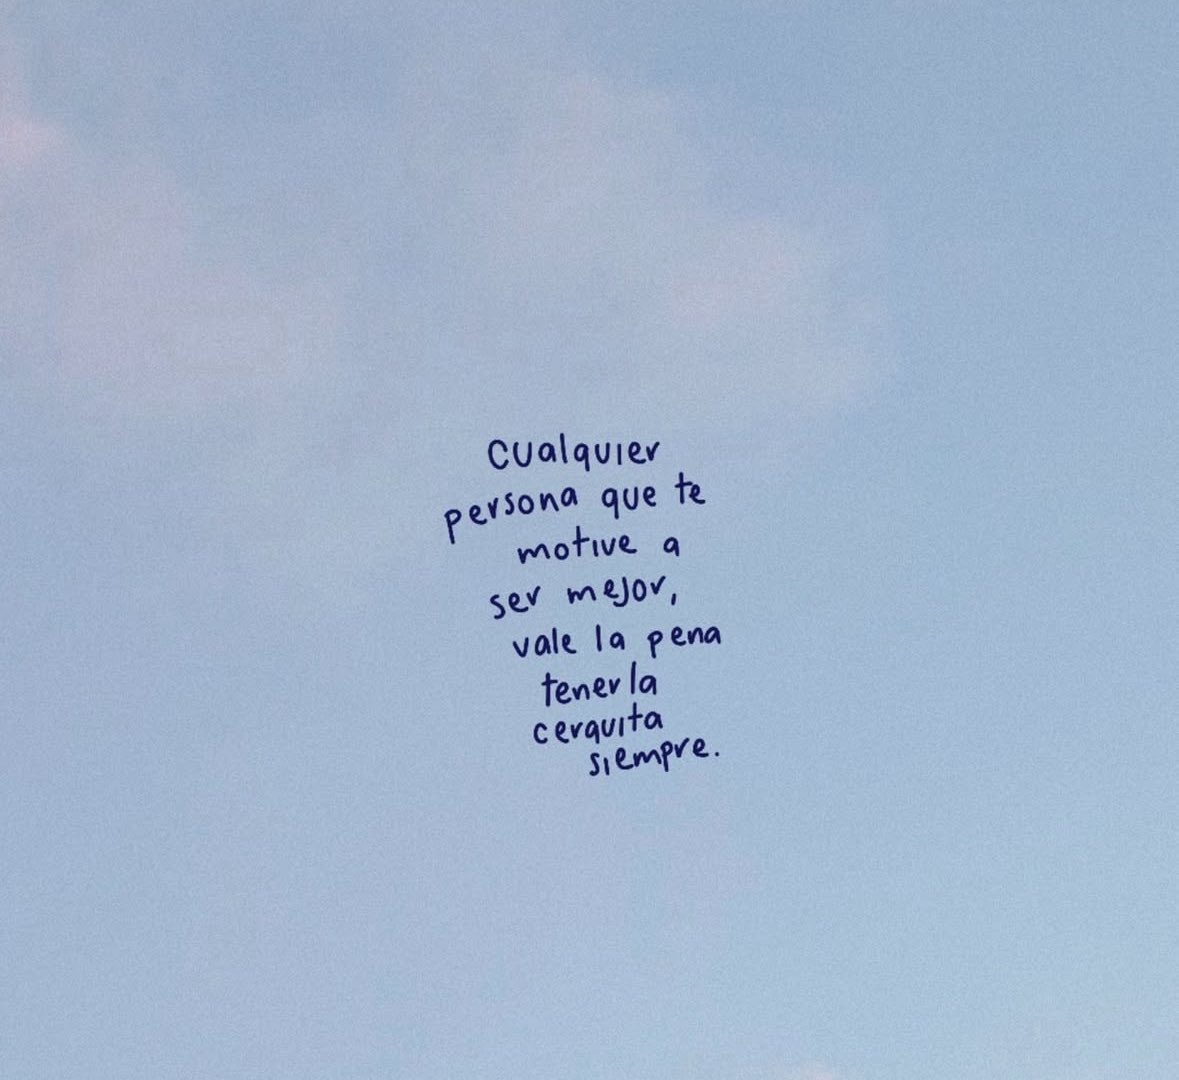 cualquier
persona que te
motive a
ser mejor,
vale la pena
tenerla
cerquita
siempre.